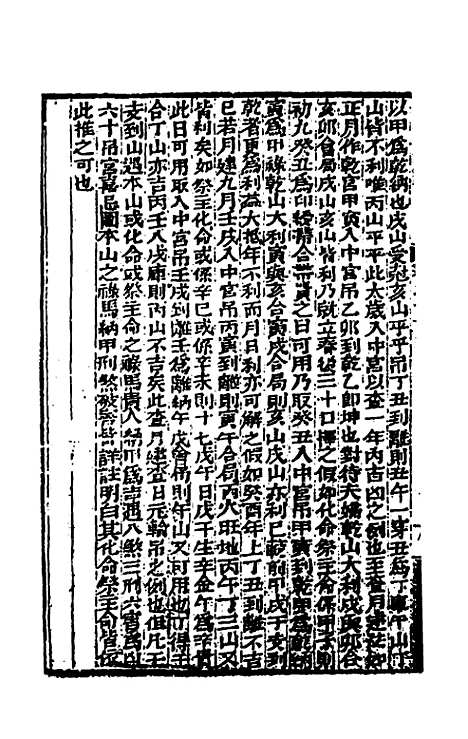 以甲為乾納也戌山受尅亥山平平吊丁丑到離則丑午一穿丑為丁庫午山丁
山皆不利唯丙山平平此太歲入中宮以查一年內吉凶之例也至查月建如
正月作乾宮甲寅入中宮吊乙卯到乾乙卽坤也對待夫婦乾山大利戌與卯合
亥卯會局戌山亥山皆利乃就立春後三十日擇之假如化命祭主命係甲子則
初九癸丑為印綬暗合帶貴之日可用乃取癸丑入中宮吊甲寅到乾甲為乾納
寅為甲祿乾山大利寅與亥合寅戌合局則亥山戌山亦利已前甲戌丁亥到
乾者更為利益大抵年不利而月日利亦可解之假如癸酉年上丁丑到離不吉
已若月建九月壬戌入中宮吊丙寅到離則寅午合局丙火旺地丙午丁三山又
皆利矣如祭主化命或係辛巳或係辛未則十七戊午日戊干生辛金午為貴
此日可用取入中宮吊壬戌到離壬為離納午戌會局則午山又可用也丁得壬
合丁山亦吉丙壬入戌庫則丙山不吉矣此查月建查日元輪吊之例也但凡干
支到山遇本山或化命或祭主命之祿馬貴人納甲為吉遇八煞三刑六害為凶
六十吊宮嘉忌圖本山之祿馬納甲刑煞破等詳註明白其化命祭主命皆依
此推之可也